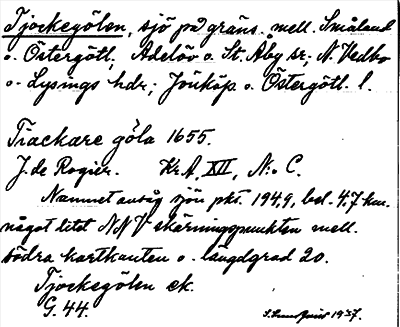 Tjockegölen, sjö på gräns. mell. Småland
o. Östergötl., Adelöv o. St. Åby sr; N. Vedbo
o. Lysings hdr; Jönköp. o. Östergötl. l.
Trackare göla 1655.
J. de Rogier. Kr. A. XII, N:o C.
Namnet avsåg sjön pkt. 194,9, bel. 4,7 km.
något litet NNV skärningspunkten mell.
södra kartkanten o. längdgrad 20.
Tjockegölen ek.
G. 44.
1937.